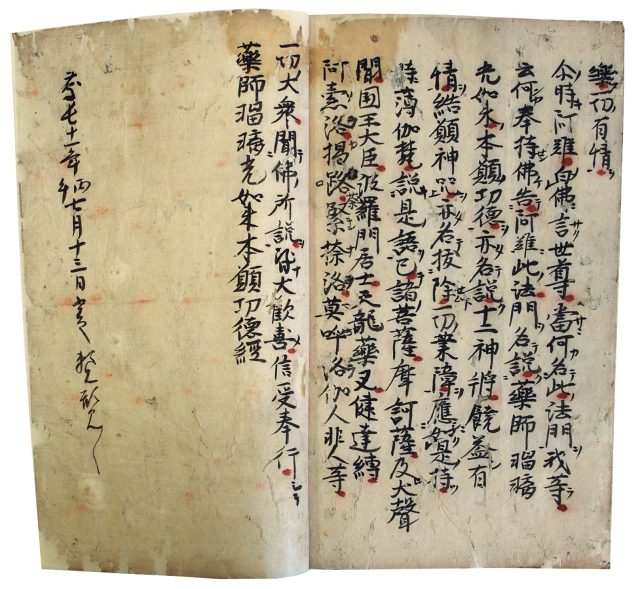 樂一切有情
尒時阿難白佛言世尊當何名此法門我等
云何奉持佛告阿難此法門名說藥師瑠璃
光如来本願功德亦名說十二神将饒益有
情結願神呪亦名拔除一切業障應如是持
時薄伽梵說是語已諸菩薩摩訶薩及大聲
聞国王大臣波羅門居士天龍藥叉健達縛
阿素洛揭路荼緊捺洛莫呼洛伽人非人等
一切大衆聞佛所說皆大歡喜信受奉行
藥師瑠璃光如来本願功德經
慶長十一年丙午七月十三日